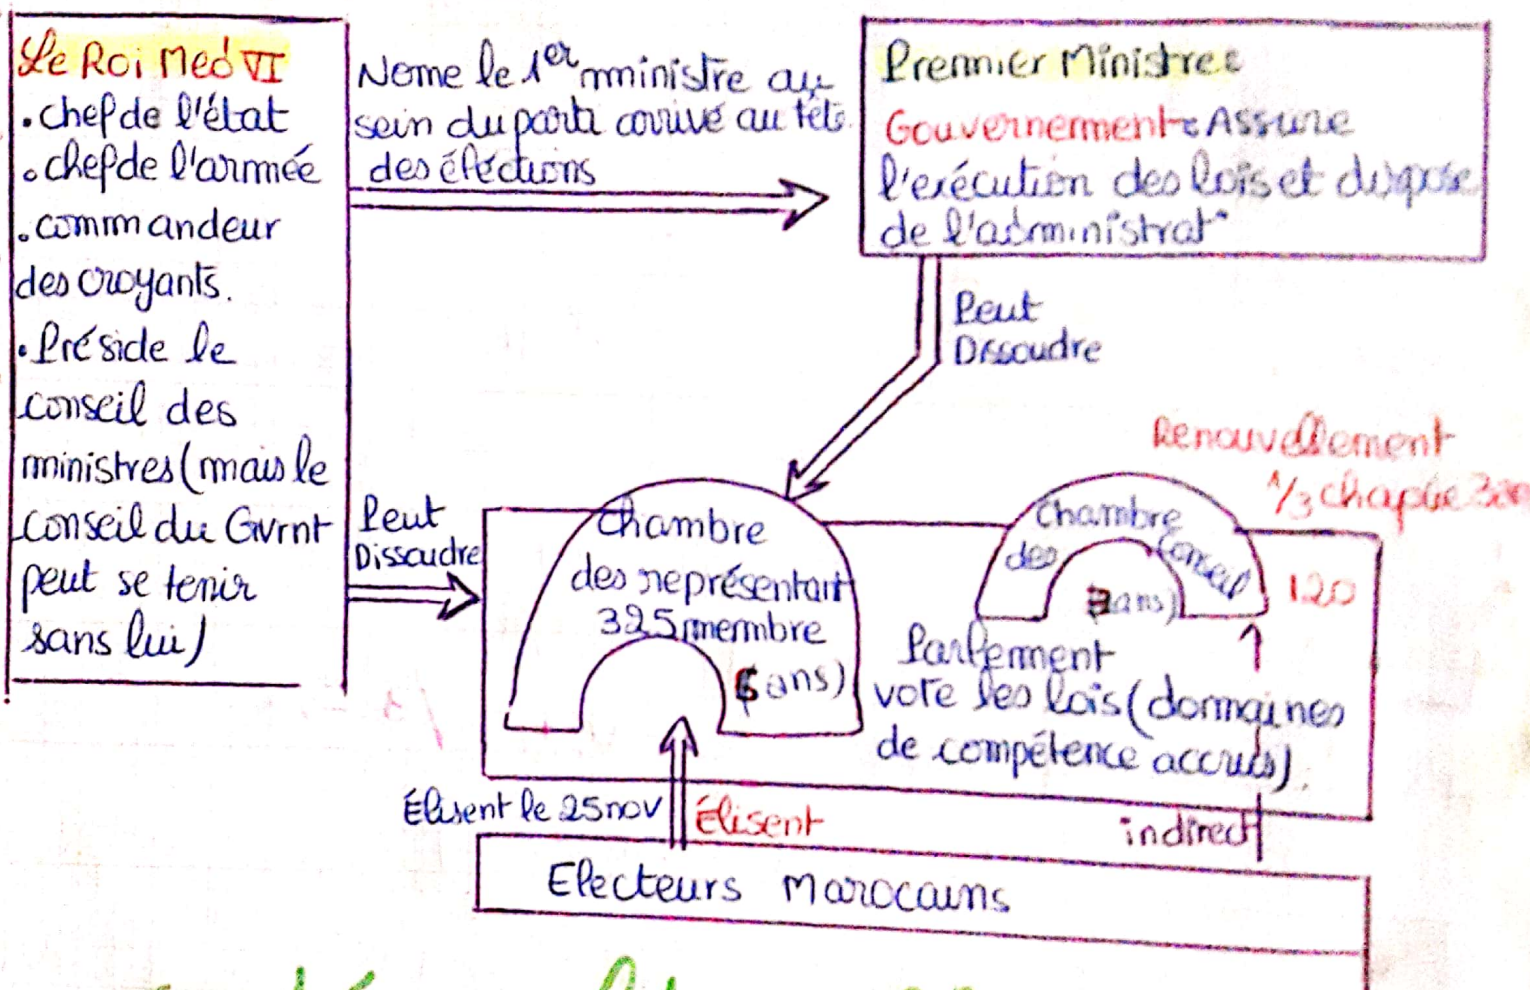 Le Roi Med VI
. chef de l'état
. chef de l'armée
. commandeur
des croyants.
. Préside le
conseil des
ministres (mais le
conseil du Gvrnt
peut se tenir
sans lui)
Nome le 1er mministre au
sein du parti arrivé au tête
des éléctions
Premier Ministre :
Gouvernement : Assure
l'exécution des lois et dispose
de l'administrat°
Peut
Dissoudre
Peut
Dissoudre
Chambre
des représentant
325 membre
ans)
Renouvellement
1/3 chaque 3an
Chambre
des Conseil
ans)
120
Parlement
vote les lois (domaines
de compétence accrus).
Élisent le 25 nov
Élisent
indirect
Electeurs Marocains